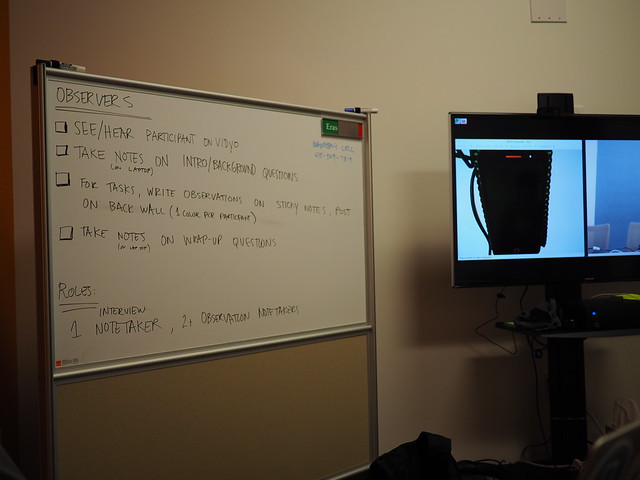 OBSERVERS
SEE/HEAR PARTICIPANT ON VIDYO
TAKE NOTES ON INTRO/BACKGROUND QUESTIONS
(ON LAPTOP)
FOR TASKS, WRITE OBSERVATIONS ON STICKY NOTES, POST
ON BACK WALL (1 COLOR PER PARTICIPANT)
TAKE NOTES ON WRAP-UP QUESTIONS
(ON LAPTOP)
ROLES:
INTERVIEW
1 NOTETAKER, 2+ OBSERVATION NOTETAKERS
Eras